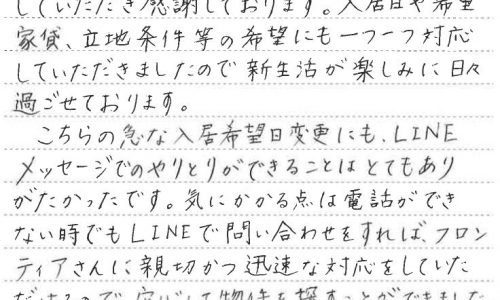 していただき感謝しております。入居日や希望
家賃、立地条件等の希望にも一つ一つ対応
していただきましたので新生活が楽しみに日々
過ごせております。
こちらの急な入居希望日変更にも、LINE
メッセージでのやりとりができることはとてもあり
がたかったです。気にかかる点は電話ができ
ない時でもLINEで問い合わせをすれば、フロン
ティアさんに親切かつ迅速な対応をしていた
だけるので、安心して物件を探すことができました